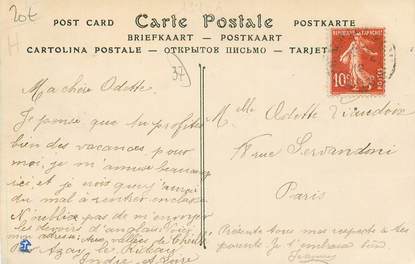 20€
H
37
POST CARD Carte Postale POSTKARTE
BRIEFKAART — POSTKAART
CARTOLINA POSTALE — ОТКРЫТОЕ ПИСЬМО — TARJET
REPUBLIQUE FRANÇAISE
10c
Ma chère Odette.
Je pense que tu profites
bien des vacances pour
moi, je m'amuse beaucoup
ici, et je crois que j'aurai
du mal à rentrer en classe
N'oublie pas de m'envoyer
les devoirs d'anglais. Voici
mon adresse: aux vallées de
par Azay le Rideau
Indre et Loire
Melle Odette
rue Servandoni
Paris
Présente tous mes respects à tes
parents Je t'embrasse bien